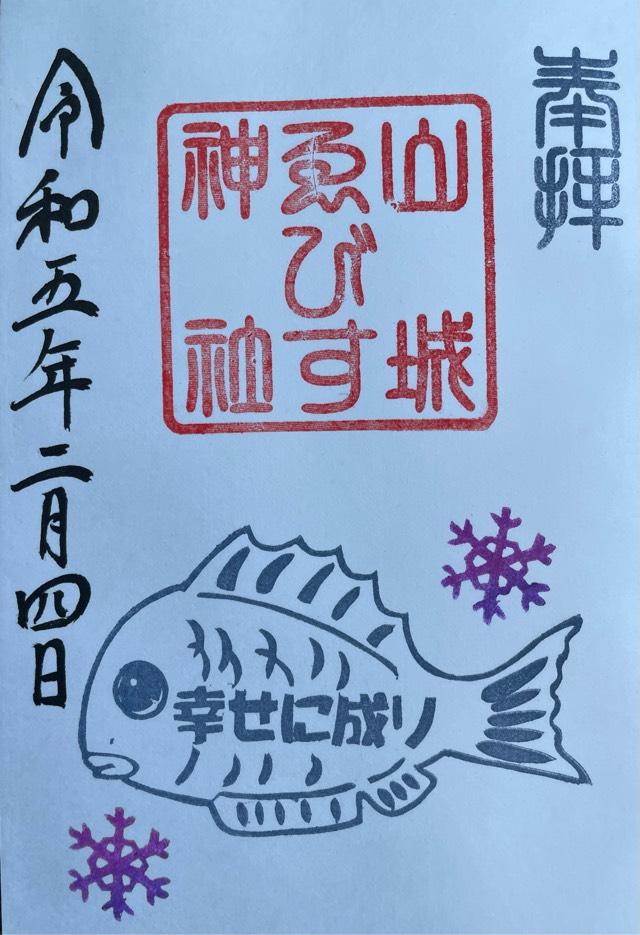 奉拝
山城
ゑびす
神社
幸せに成り
令和五年二月四日